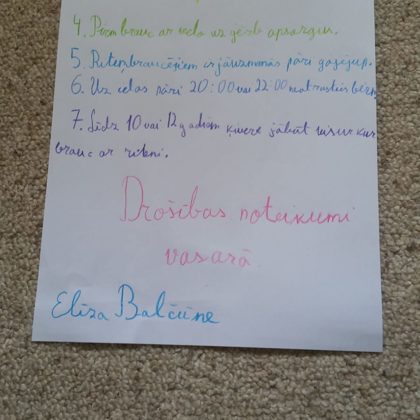 4. Pirm brauc ar velo uz ģērb apsargus.
5. Riteņbraucējiem irjāuzmanās pāri gājēju.
6. Uz ielas pāri 20:00 vai 22:00
7. Līdz 10 vai 12 gadiem ķivere jābūt visur kur
brauc ar riteni.
Drošības noteikumi
vasarā
Elīza Balčūne